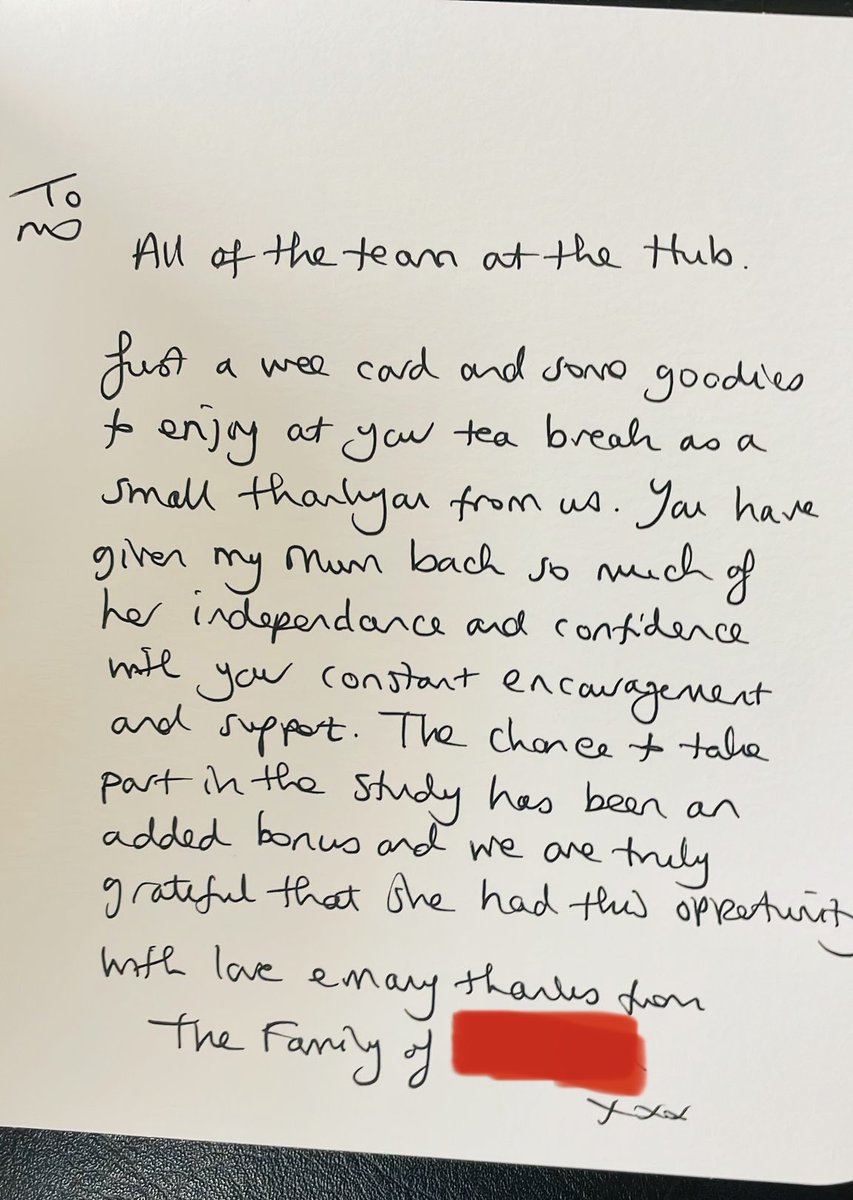 To
All of the team at the Hub.
Just a wee card and some goodies
to enjoy at your tea break as a
small thankyou from us. You have
given my Mum back so much of
her independance and confidence
with your constant encouragement
and support. The chance to take
part in the study has been an
added bonus and we are truly
grateful that she had this oppretunity
with love & many thanks from
The Family of
xxx